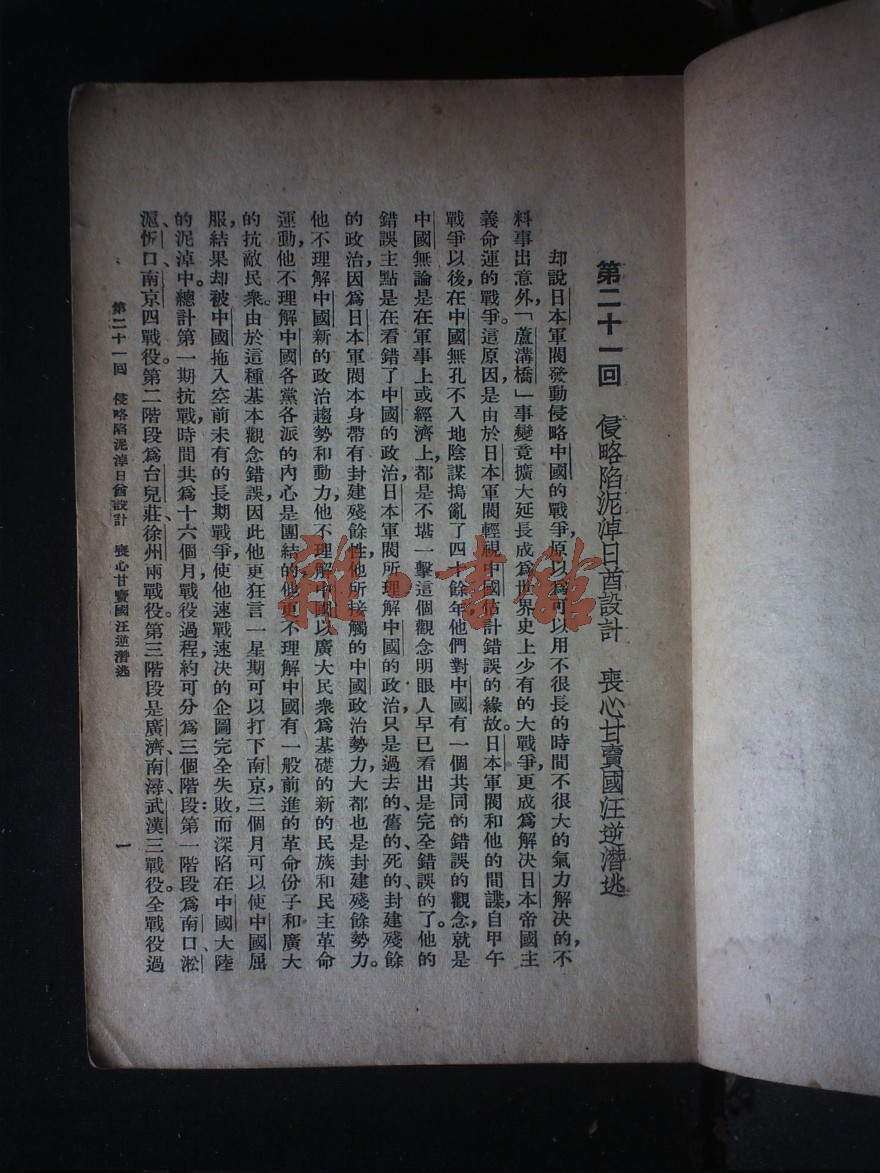 第二十一回　侵略陷泥淖日酋設計　喪心甘賣國汪逆潛逃
却說日本軍閥發動侵略中國的戰爭，原以爲可以用不很長的時間不很大的氣力解決的，不
料事出意外，「蘆溝橋」事變竟擴大延長成爲世界史上少有的大戰爭，更成爲解決日本帝國主
義命運的戰爭。這原因，是由於日本軍閥輕視中國估計錯誤的緣故。日本軍閥和他的間諜，自甲午
戰爭以後，在中國無孔不入地陰謀搗亂了四十餘年，他們對中國有一個共同的錯誤的觀念，就是
中國無論是在軍事上或經濟上，都是不堪一擊這個觀念明眼人早已看出是完全錯誤的了。他的
錯誤主點是在看錯了中國的政治，日本軍閥所理解中國的政治，只是過去的、舊的、死的、封建殘餘
的政治，因爲日本軍閥本身帶有封建殘餘性，他所接觸的中國政治勢力，大都也是封建殘餘勢力。
他不理解中國新的政治趨勢和動力，他不理解中國以廣大民衆爲基礎的新的民族和民主革命
運動，他不理解中國各黨各派的內心是團結的，他更不理解中國有一般前進的革命份子和廣大
的抗敵民衆。由於這種基本觀念錯誤，因此他更狂言一星期可以打下南京，三個月可以使中國屈
服，結果却被中國拖入空前未有的長期戰爭，使他速戰速決的企圖完全失敗，而深陷在中國大陸
的泥淖中。總計第一期抗戰時間共爲十六個月，戰役過程，約可分爲三個階段：第一階段爲南口、淞
滬、忻口、南京四戰役。第二階段爲台兒莊、徐州兩戰役。第三階段是廣濟、南潯、武漢三戰役。全戰役過
第二十一回　侵略陷泥淖日酋設計　喪心甘賣國汪逆潛逃
一
雜·書館